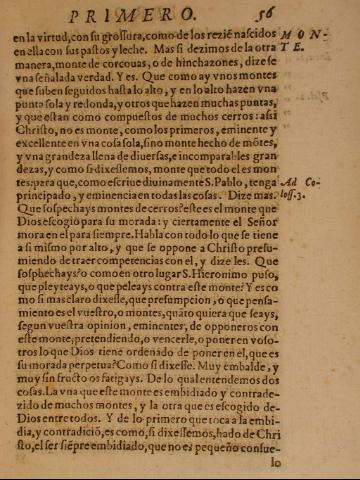 PRIMERO. 56
en la virtud, con su grossura, como de los rezie nascidos
en ella con sus pastos y leche. Mas si dezimos de la otra
manera, monte de corcouas, o de hinchazones, dize se
vna señalada verdad. Y es. Que como ay vnos montes
que suben seguidos hasta lo alto, y en lo alto hazen vna
punta sola y redonda, y otros que hazen muchas puntas,
y que estan como compuestos de muchos cerros: assi
Christo, no es monte, como los primeros, eminente y
excellente en vna cosa sola, sino monte hecho de mõtes,
y vna grandeza llena de diuersas, e incomparables gran
dezas, y como si dixessemos, monte que todo el es mon
tes: para que, como escriue diuinamente S. Pablo, tenga
principado, y eminencia en todas las cosas. Dize mas.
Que sospechays montes de cerros? este es el monte que
Dios escogio para su morada: y ciertamente el Señor
mora en el para siempre. Habla con todo lo que se tiene
a si mismo por alto, y que se oppone a Christo presu-
miendo de traer competencias con el, y dize les. Que
sospechays? o como en otro lugar S. Hieronimo puso,
que pleyteays, o que peleays contra este monte? Y es co
mo si mas claro dixesse, que presumpcion, o que pensa-
miento es el vuestro, o montes, quãto quiera que seays,
segun vuestra opinion, eminentes, de opponeros con
este monte; pretendiendo, o vencerle, o poner en voso-
tros lo que Dios tiene ordenado de poner en el, que es
su morada perpetua? Como si dixesse. Muy embalde, y
muy sin fructo os fatigays. De lo qual entendemos dos
cosas. La vna que este monte es embidiado y contrade-
zido de muchos montes, y la otra que es escogido de-
Dios entre todos. Y de lo primero que toca a la embi-
dia, y contradiciõ, es como, si dixessemos, hado de Chri
sto, el ser siẽpre embidiado, que no es pequeño consue-
lo
MON-
TE.
Ad Co-
loss. 3.